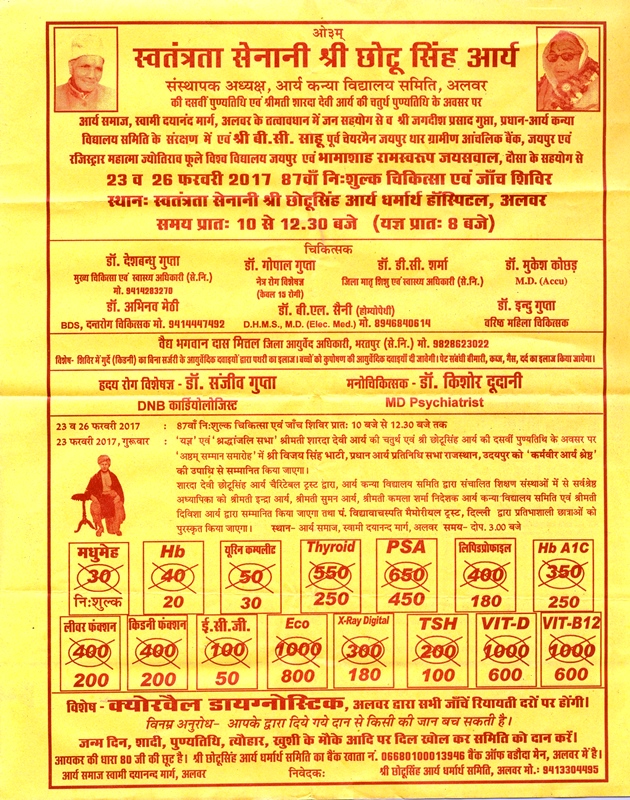 ओ३म्
स्वतंत्रता सेनानी श्री छोटू सिंह आर्य
संस्थापक अध्यक्ष, आर्य कन्या विद्यालय समिति, अलवर
की दसवीं पुण्यतिथि एवं श्रीमती शारदा देवी आर्य की चतुर्थ पुण्यतिथि के अवसर पर
आर्य समाज, स्वामी दयानंद मार्ग, अलवर के तत्वावधान में जन सहयोग से व श्री जगदीश प्रसाद गुप्ता, प्रधान-आर्य कन्या
विद्यालय समिति के संरक्षण में एवं श्री बी.सी. साहू पूर्व चेयरमैन जयपुर थार ग्रामीण आंचलिक बैंक, जयपुर एवं
रजिस्ट्रार महात्मा ज्योतिराव फूले विश्व विद्यालय जयपुर एवं भामाशाह रामस्वरूप जयसवाल, दौसा के सहयोग से
23 व 26 फरवरी 2017 87वाँ निःशुल्क चिकित्सा एवं जाँच शिविर
स्थानः स्वतंत्रता सेनानी श्री छोटूसिंह आर्य धर्मार्थ हॉस्पिटल, अलवर
समय प्रातः 10 से 12.30 बजे (यज्ञ प्रातः 8 बजे)
चिकित्सक
डॉ. देशबन्धु गुप्ता डॉ. गोपाल गुप्ता डॉ. डी.सी. शर्मा डॉ. मुकेश कोछड़
मुख्य चिकित्सा एवं स्वास्थ्य अधिकारी (से.नि.) नैत्र रोग विशेषज्ञ जिला मातृ शिशु एवं स्वास्थ्य अधिकारी (से.नि.) M.D. (Accu)
मो. 9414283270 (केवल 15 रोगी)
डॉ. अभिनव मेठी डॉ. बी.एल. सैनी (होम्योपेथी) डॉ. इन्दु गुप्ता
BDS, दन्तरोग चिकित्सक मो. 9414447492 D.H.M.S., M.D. (Elec. Med.) मो. 8946840614 वरिष्ठ महिला चिकित्सक
वैद्य भगवान दास मित्तल जिला आयुर्वेद अधिकारी, भरतपुर (से.नि.) मो. 9828623022
विशेष- शिविर में गुर्दे (किडनी) का बिना सर्जरी के आयुर्वेदिक दवाइयों द्वारा पथरी का इलाज। बच्चों को कुपोषण की आयुर्वेदिक दवाइयाँ दी जायेगी। पेट संबंधी बीमारी, कब्ज, गैस, दर्द का इलाज किया जायेगा।
हृदय रोग विशेषज्ञ - डॉ. संजीव गुप्ता मनोचिकित्सक - डॉ. किशोर दूदानी
DNB कार्डियोलोजिस्ट MD Psychiatrist
23 व 26 फरवरी 2017 : 87वाँ निःशुल्क चिकित्सा एवं जाँच शिविर प्रातः 10 बजे से 12.30 बजे तक
23 फरवरी 2017, गुरूवार : 'यज्ञ' एवं 'श्रद्धांजलि सभा' श्रीमती शारदा देवी आर्य की चतुर्थ एवं श्री छोटूसिंह आर्य की दसवीं पुण्यतिथि के अवसर पर
'अष्ठम् सम्मान समारोह' में श्री विजय सिंह भाटी, प्रधान आर्य प्रतिनिधि सभा राजस्थान, उदयपुर को 'कर्मवीर आर्य श्रेष्ठ'
की उपाधि से सम्मानित किया जाएगा।
शारदा देवी छोटूसिंह आर्य चैरिटेबल ट्रस्ट द्वारा, आर्य कन्या विद्यालय समिति द्वारा संचालित शिक्षण संस्थाओं में से सर्वश्रेष्ठ
अध्यापिका को श्रीमती इन्द्रा आर्य, श्रीमती सुमन आर्य, श्रीमती कमला शर्मा निदेशक आर्य कन्या विद्यालय समिति एवं श्रीमती
दिविशा आर्य द्वारा सम्मानित किया जाएगा तथा पं. विद्यावाचस्पति मैमोरियल ट्रस्ट, दिल्ली द्वारा प्रतिभाशाली छात्राओं को
पुरस्कृत किया जाएगा। स्थान- आर्य समाज, स्वामी दयानन्द मार्ग, अलवर समय- दोप. 3.00 बजे
मधुमेह Hb यूरिन कम्पलीट Thyroid PSA लिपिडप्रोफाइल Hb A1C
30 40 50 550 650 400 350
निःशुल्क 20 30 250 450 180 250
लीवर फंक्शन किडनी फंक्शन ई.सी.जी. Eco X-Ray Digital TSH VIT-D VIT-B12
400 400 100 1000 300 200 1000 1000
200 200 50 800 180 100 600 600
विशेष - क्योरवैल डायग्नोस्टिक, अलवर द्वारा सभी जाँचें रियायती दरों पर होंगी।
विनम्र अनुरोध- आपके द्वारा दिये गये दान से किसी की जान बच सकती है।
जन्म दिन, शादी, पुण्यतिथि, त्यौहार, खुशी के मौके आदि पर दिल खोल कर समिति को दान करें।
आयकर की धारा 80 जी की छूट है। श्री छोटूसिंह आर्य धर्मार्थ समिति का बैंक खाता नं. 06680100013946 बैंक ऑफ बडौदा मेन, अलवर में है।
आर्य समाज स्वामी दयानन्द मार्ग, अलवर निवेदकः श्री छोटूसिंह आर्य धर्मार्थ समिति, अलवर मो.: 9413304495